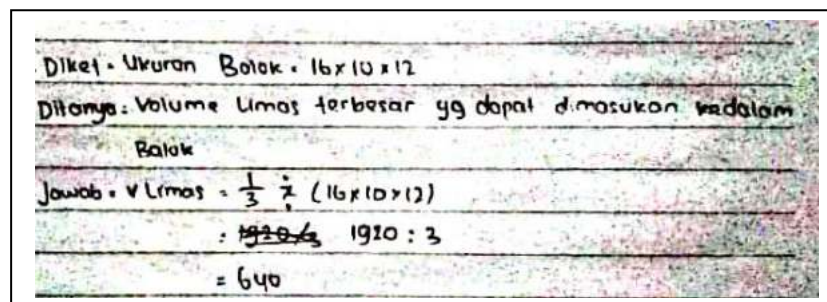 Diket : Ukuran Balok : 16 x 10 x 12
Ditanya : Volume Limas terbesar yg dapat dimasukan kedalam
Balok
Jawab : v Limas = 1/3 x (16 x 10 x 12)
: 1920 : 3
= 640